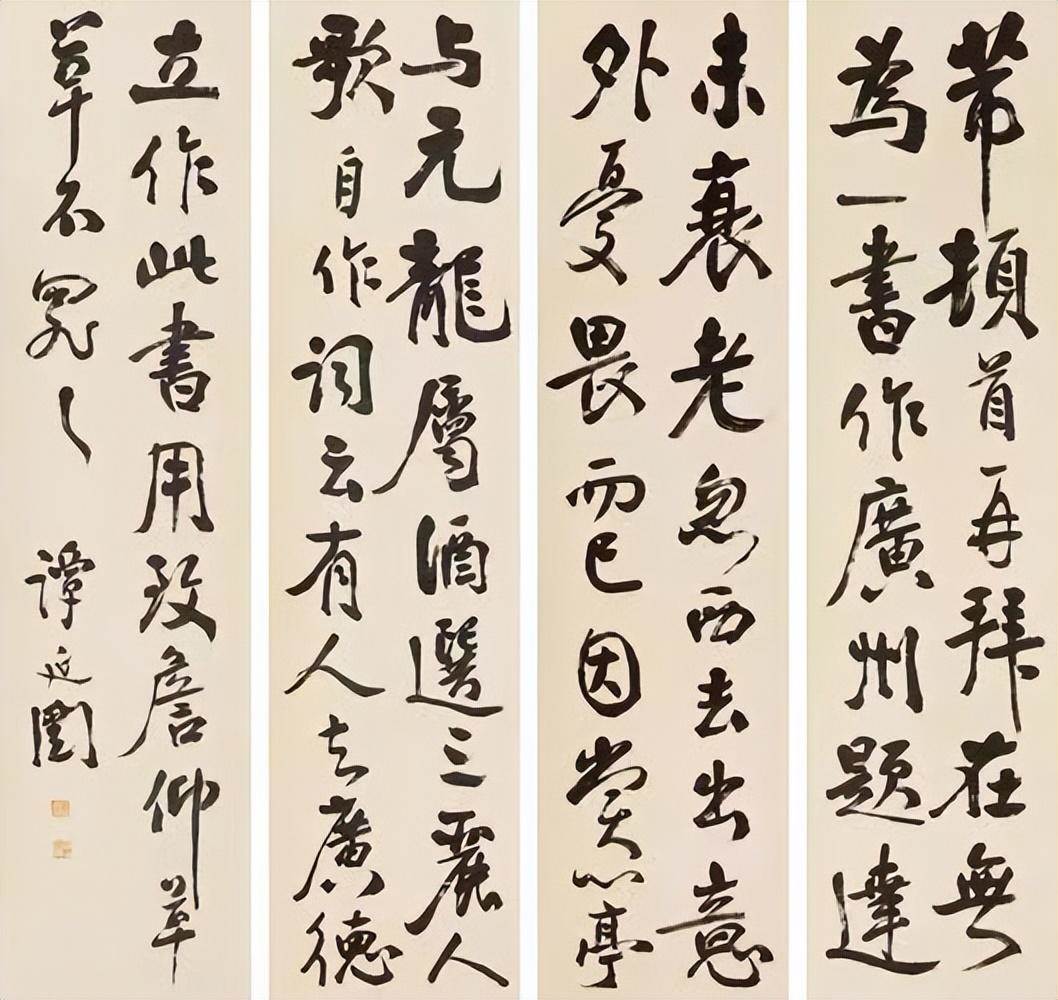 芾頓首再拜在無
為一書作廣州題達
未衰老忽西去出意
外憂畏而已因賞心亭
与元龍屬酒選三麗人
歌自作詞云有人去廣德
立作此書用致詹仰草
草不罪〻 譚延闓